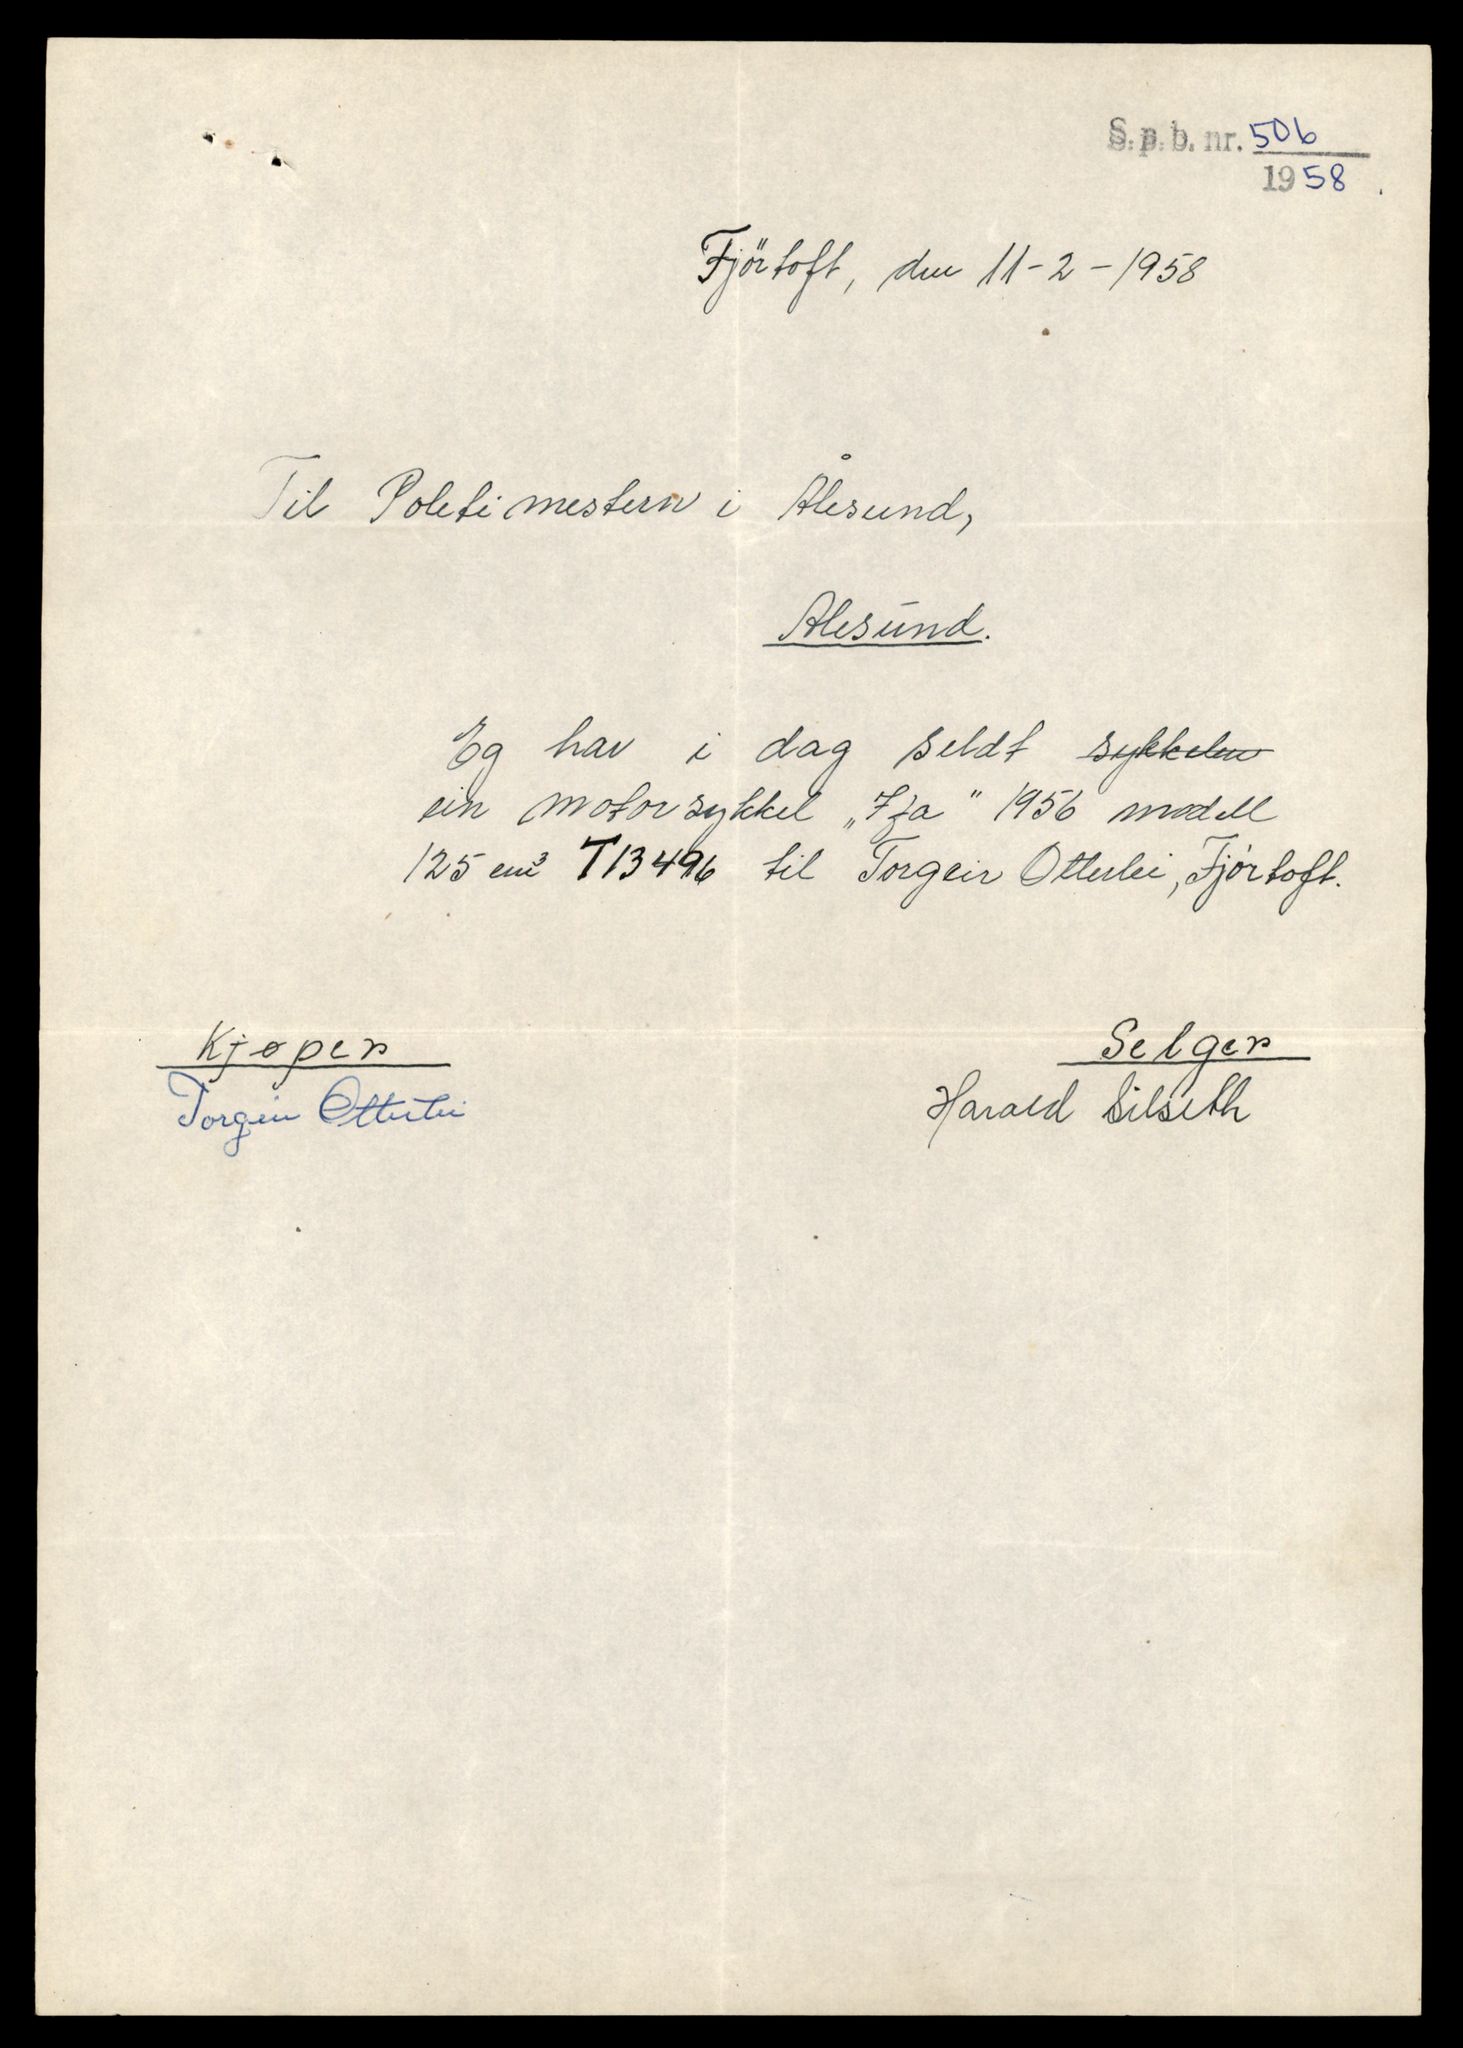 S.p.b. nr. 506
1958
Fjörtoft, den 11-2-1958
Til Poletimestern i Ålesund,
Alesund.
Eg hav i dag seldt sykkelen
ein motorsykkel „Ifa" 1956 modell
125 cm³ T13496 til Torgeir Otterlei, Fjörtoft.
Kjøper
Torgeir Otterlei
Selger
Harald Silseth